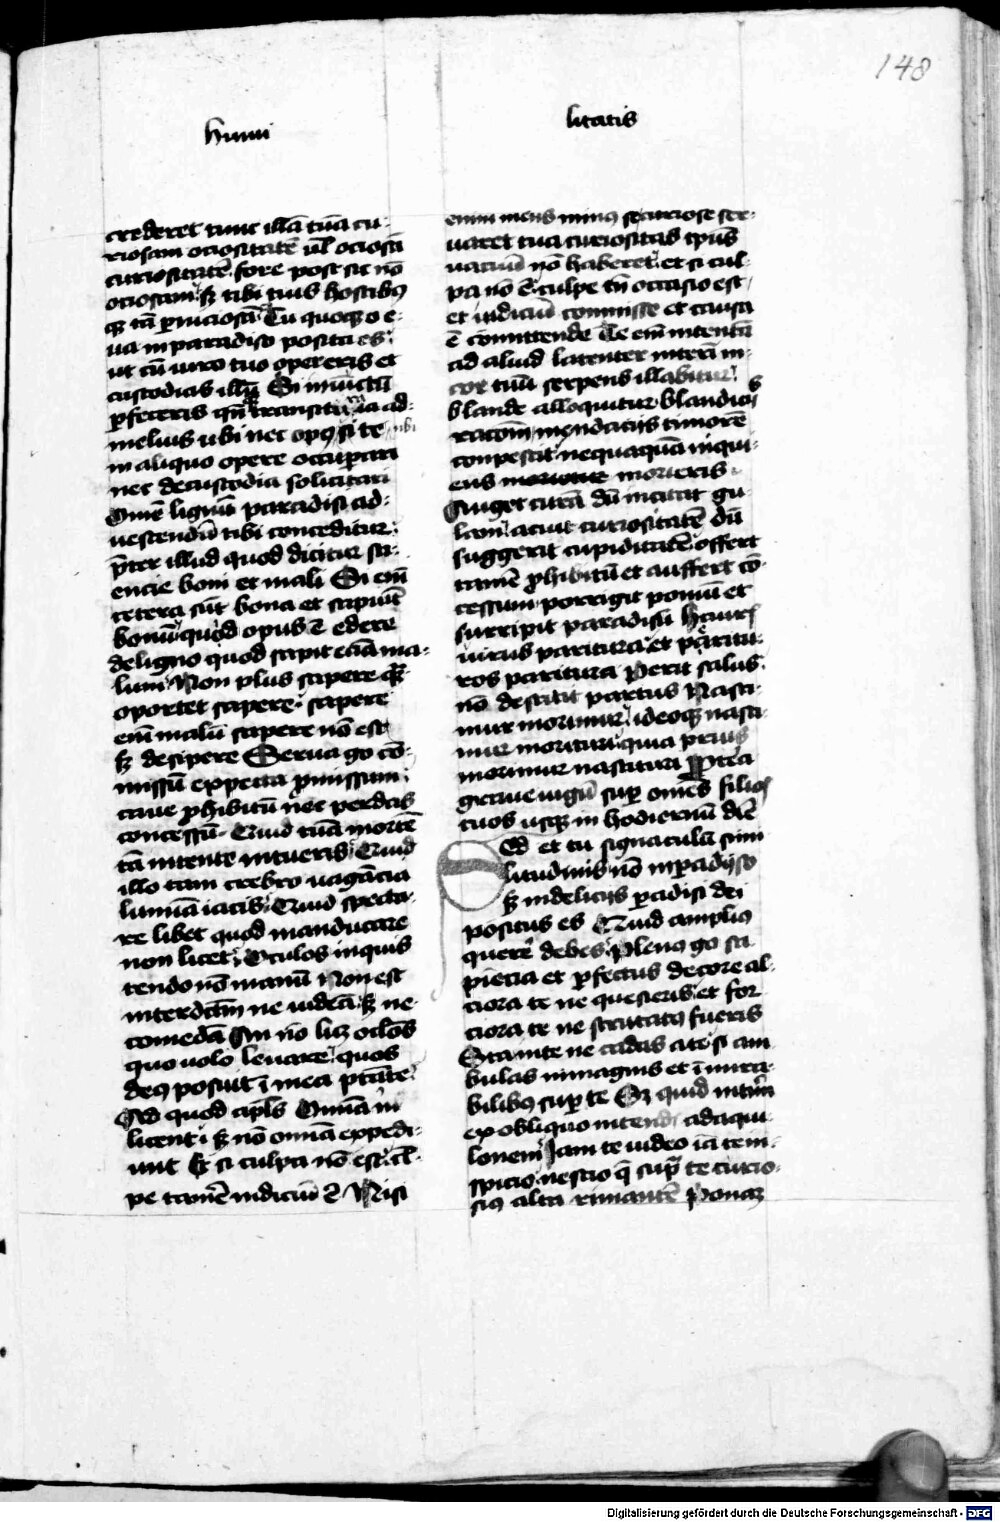 148
humi
litatis
crederet tunc illā tuā cu-
riosam ociositatē ul̄ ociosā
curiositatē fore post sit nō
ociosam sꝫ tibi tuis hostibꝰ
qꝫ tā ꝑniciosā Tu quoqꝫ o e-
ua in paradiso posita es
ut cū uiro tuo opereris et
custodias illū Si iniūctū
ꝑfeceris qn̄qꝫ transitura ad
melius ubi nec opꝰ sit te
in aliquo opere occupari
nec de custodia solicitari
Omē lignū paradisi ad
uescendū tibi conceditur
p̄ter illud quod dicitur sci-
encie boni et mali Si em̄
cetera sūt bona et sapiūt
bonū quid opus ē edere
de ligno quod sapit eciā ma-
lum Non plus sapere qͣꝫ
oportet sapere sapere
em̄ malū sapere nō est
sꝫ desipere Serua go cō-
missū expecta ꝓmissum
caue ꝓhibitū nec perdas
concessū Quid tuā mortē
tā intente intueris Quid
illo tam crebro uagācia
lumīa iacis Quid specta-
re libet quod manducare
non licet Oculos inquis
tendo nō manū Non est
interdictm̄ ne uideā sꝫ ne
comedā An nō licꝫ oclōs
quo uolo leuare quos
deus posuit ī mea ptāte
Ad quod apls̄ Omīa mͥ
licent sꝫ nō omīa expedi-
unt Et si culpa nō est cͣl-
pe tamē indiciū ē Nisi
enim mens minꝰ se curiose ser-
uaret tua curiositas tp̄us
uacuū nō haberet et si cul-
pa nō ē culpe tn̄ occasio est
et indiciū commisse et causa
ē cōmittende Te em̄ intentā
ad aliud latenter interī in
cor tuū serpens illabitur
blande alloquitur blandiciis
racōm mendaciis timorē
conpescit nequaquā inqui-
ens morieris
Auget curā dū incitat gu-
lam acuit curiositatē dū
suggerit cupiditatē offert
tamē ꝓhibitū et auffert cō-
cessum porrigit pomū et
surripit paradisū Hauris
uirus paritura et paritu-
ros paritura Perit salus
nō destitit partus Nasci-
mur morimur ideoqꝫ nasci-
mur morituri quia prius
morimur nascituri Propt̄ea
graue iugū suꝑ omēs filios
tuos usqꝫ in hodiernū diē
Sed et tu signaculū simi
litudinis nō in ꝑadyso
sꝫ in deliciis ꝑadisi dei
positus es Quid amplius
querē debes Plenꝰ go sa
piecia et ꝑfectus decore al-
ciora te ne quesieris et for
ciora te ne scrutatꝰ fueris
Sta in te ne cadas a te si am
bulas in magnis et ī mira-
bilibꝰ suꝑ te Sꝫ quid intim̄
ex obliquo intendis ad aqui-
lonem Iam te uideo iā te in-
spicio nescio qͣ supͣ te curio-
siꝰ alta rimantē Ponaꝫ
Digitalisierung gefördert durch die Deutsche Forschungsgemeinschaft - DFG